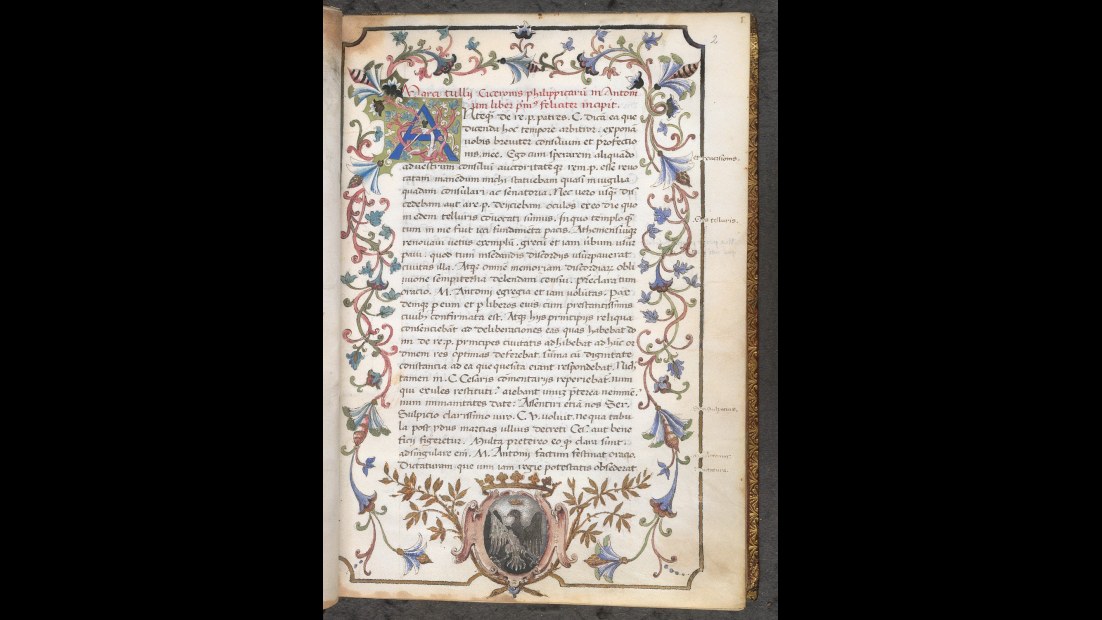 2
Marci tullij Ciceronis philippicarū in Antoni
um liber pm⁹ feliciter incipit.
Anteq̃ de re. p. patres. C. dicā ea que
dicenda hoc tempore arbitror. exponā
uobis breuiter consilium et profectio
nis mee. Ego cum sperarem aliquādo
ad uestrum consiliū auctoritateq̃ rem. p. esse reuo
catam manēdum michi statuebam quasi in uigilia
quadam consulari ac senatoria. Nec uero usq̃ dis
cedebam aut a re. p. deijciebam oculos ex eo die quo
in edem telluris conuocati sumus. In quo templo q̃
tum in me fuit ieci fundamēta pacis. Atheniensiūq̃
renouaui uetus exemplū. grecū et iam ūbum usur
paui. quod tum in sedādis discordijs usurpauerat
ciuitas illa. Atq̃ omnē memoriam discordiarū obli
uione sempiterna delendam censui. Preclara tum
oratio. M. Antonij egregia et iam uolūtas. Pax
deniq̃ p eum et p liberos eius cum prestantissimis
ciuib⁹ confirmata est. Atq̃ hijs principijs reliqua
consenciebāt ad deliberationes eas quas habebat do
mi de re. p. principes ciuitatis adhibebat ad hūc or
dinem res optimas deferebat. summa cū dignitate
constantia ad ea que quesita erant respondebat. Nich
tamen in. C. Cesaris cōmentarijs reperiebat̃ num
qui exules restituti? aiebant unuȝ p̃terea neminē.
num immunitates date? Assentiri etiā nos Ser.
Sulpicio clarissimo uiro. C. V. uoluit. ne qua tabu
la post ydus martias ullius decreti Ces̃ aut bene
ficij figeretur. Multa pretereo eoq̃ clara sunt.
ad singulare em̃. M. Antonij factum festinat oratio.
Dictaturam que uim iam regie potestatis obsederat
Edes telluris.